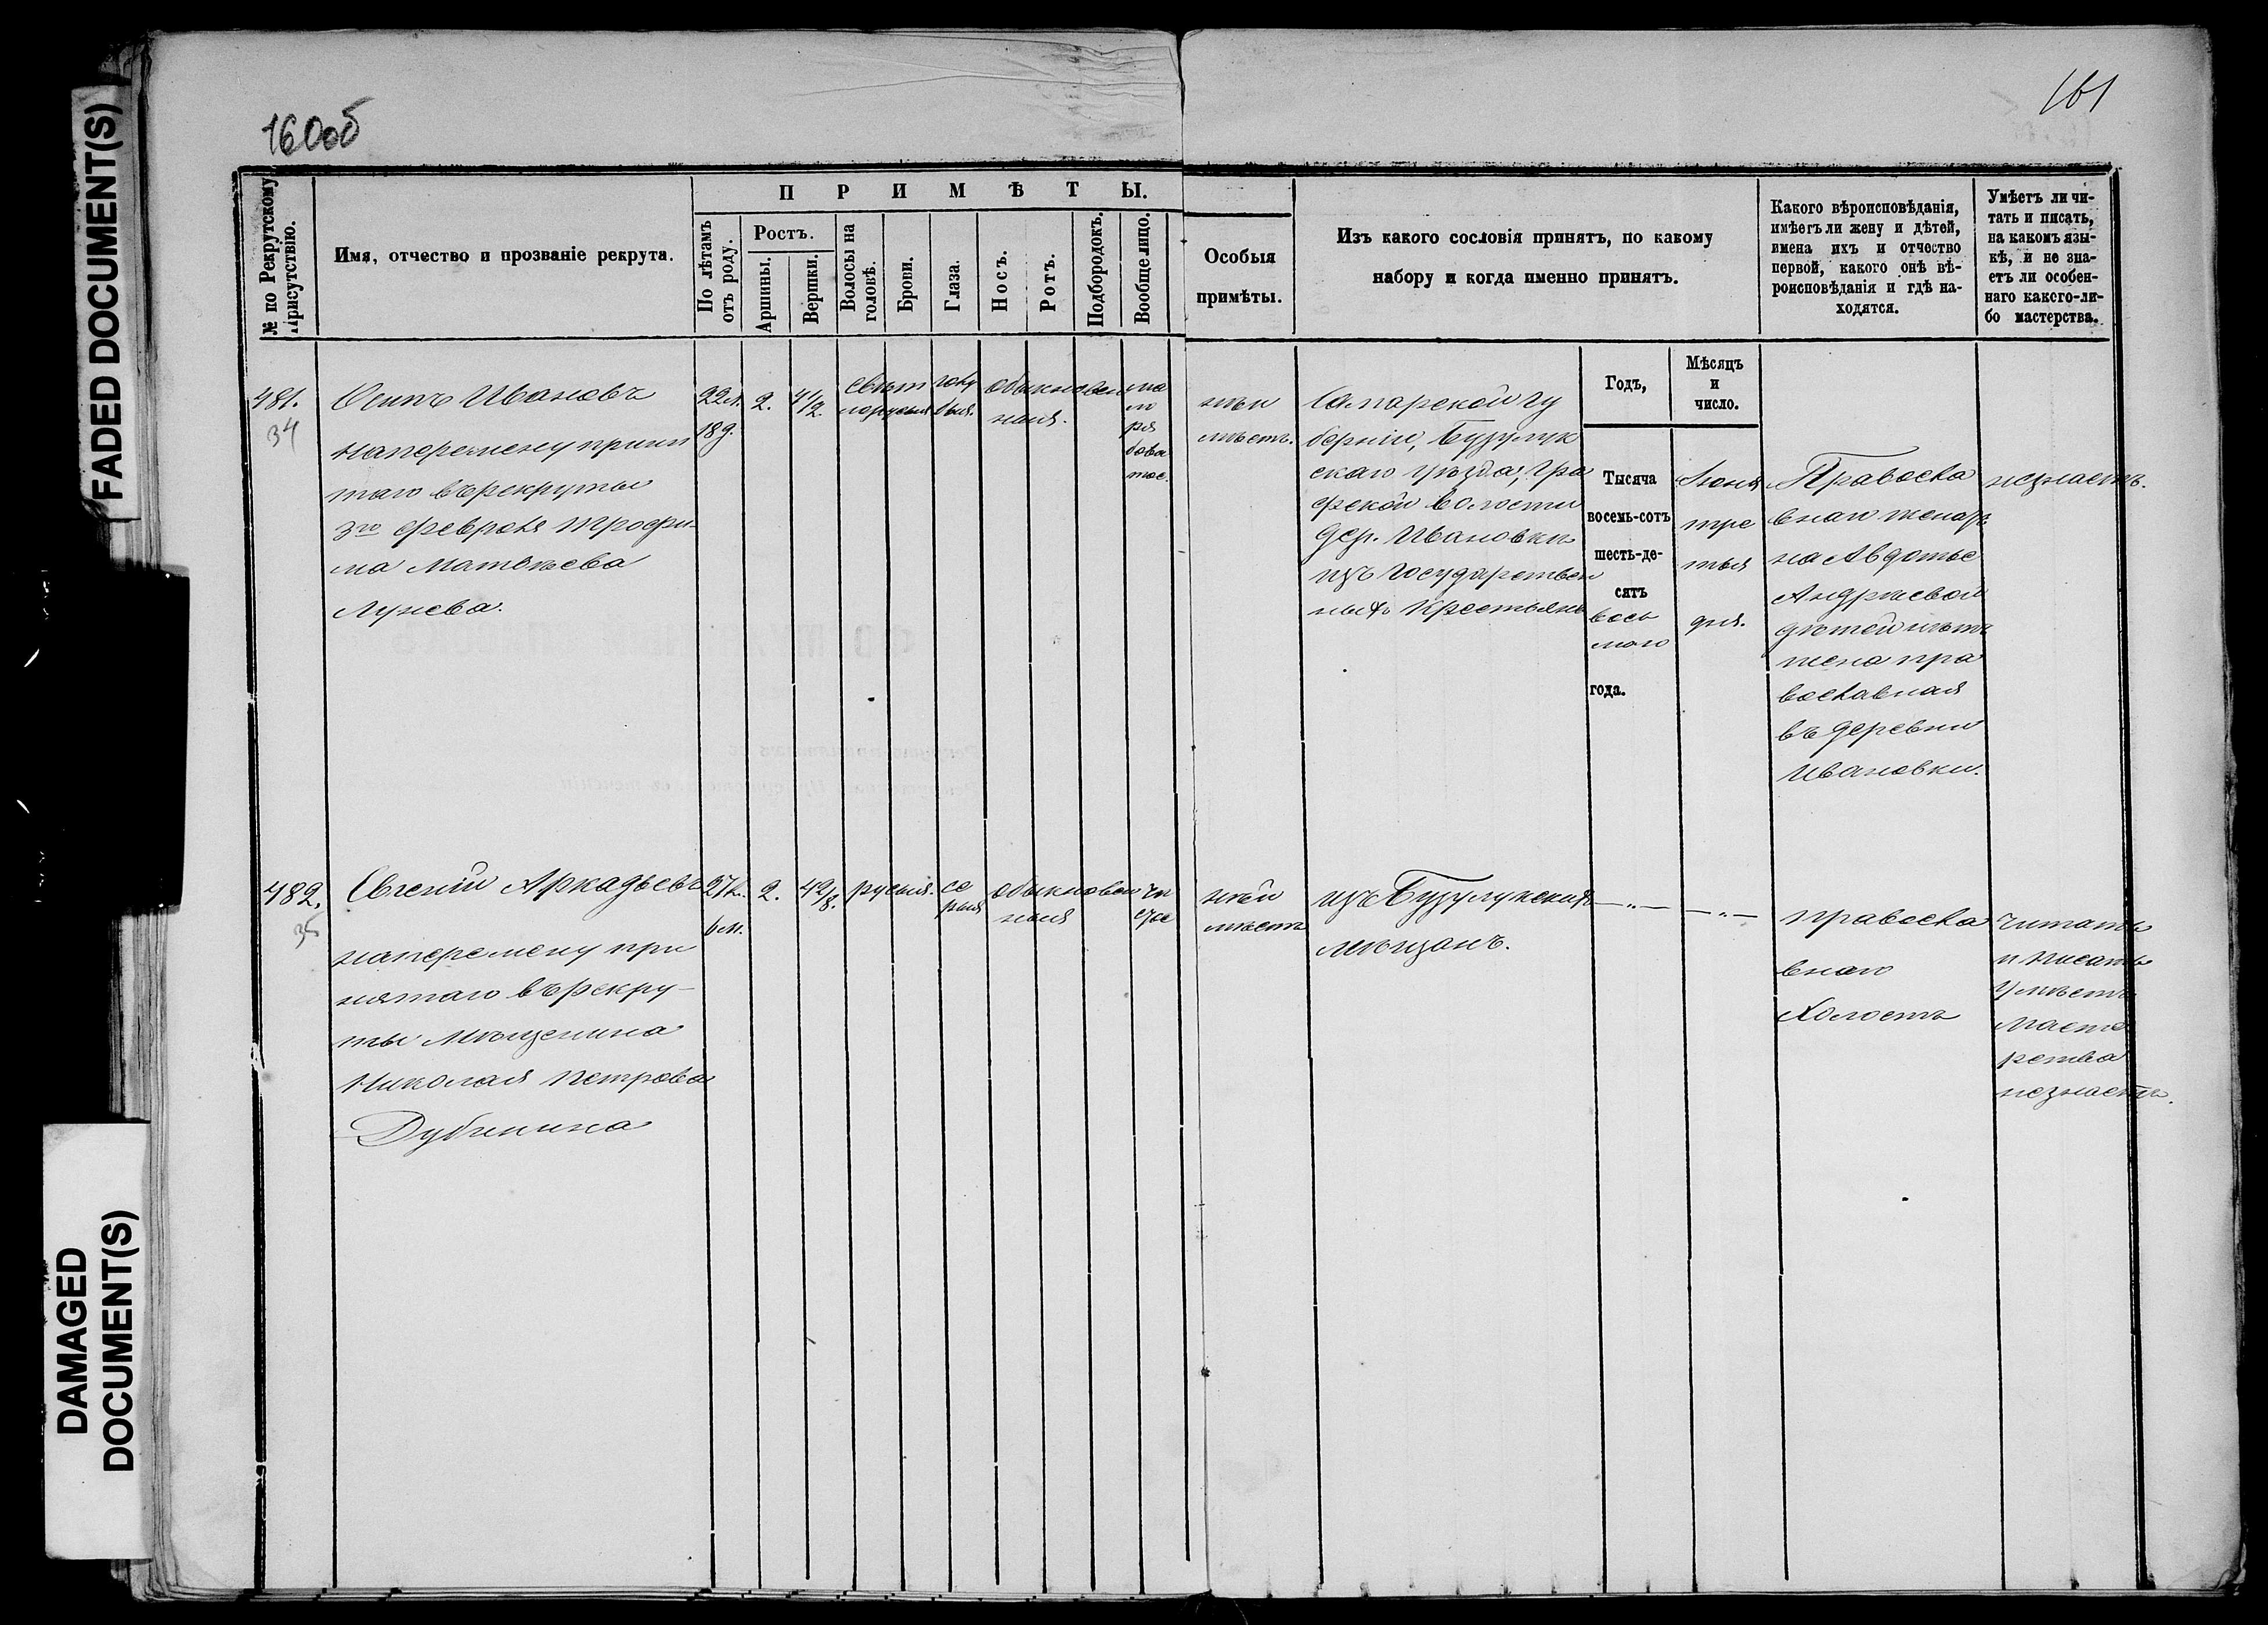 FADED DOCUMENT(S)
DAMAGED
DOCUMENT(S)
160об
161
№ по Рекрутскому
Присутствію.
Имя, отчество и прозваніе рекрута.
ПРИМѢТЫ.
По лѣтамъ
отъ роду.
Ростъ.
Аршины.
Вершки.
Волосы на
головѣ.
Брови.
Глаза.
Носъ.
Ротъ.
Подбородокъ.
Вообще лицо.
Особыя
примѣты.
Изъ какого сословія принятъ, по какому
набору и когда именно принятъ.
Какого вѣроисповѣданія,
имѣетъ ли жену и дѣтей,
имена ихъ и отчество
первой, какого онѣ вѣ-
роисповѣданія и гдѣ на-
ходятся.
Умѣетъ ли чи-
тать и писать,
на какомъ язы-
кѣ, и не зна-
етъ ли особен-
наго какого-ли-
бо мастерства.
Годъ,
Мѣсяцъ
и
число.
481.
34
Осипъ Ивановъ
наперемену приня
таго въ рекруты
3го февраля Трофи-
ма Матвѣева
Лунева.
22 л.
18 д.
2.
4 1/2
свѣтл
лорусыя
голу
быя.
обыкновен
ныя.
ря
бова
тое.
неи
мѣетъ.
Самарской гу
берніи, Бузулук
скаго уѣзда, Гра
фской волости
дер. Ивановки
изъ государствен
ныхъ крестьянъ
Тысяча
восемь-сотъ
шесть-де-
сятъ
вось
маго
года.
Іюня
тре
тья
дня.
Правосла
внаго женатъ
на Авдотье
Андреевой
детей нѣтъ
жена пра
вославная
въ деревни
Ивановки.
незнаетъ.
482.
35
Евгеній Аркадьевъ
наперемену при
нятаго въ рекру-
ты мѣщенина
Николая Петрова
Дубинина
27 л.
6 м.
2.
4 2/8.
русыя.
се
рыя
обыкновен
ныя
чи
стое
неи
мѣетъ
изъ Бузулукскихъ
мѣщанъ.
—„—
—„—
правосла
внаго
холостъ
читать
и писать
умѣетъ
масте
рства
незнаетъ.